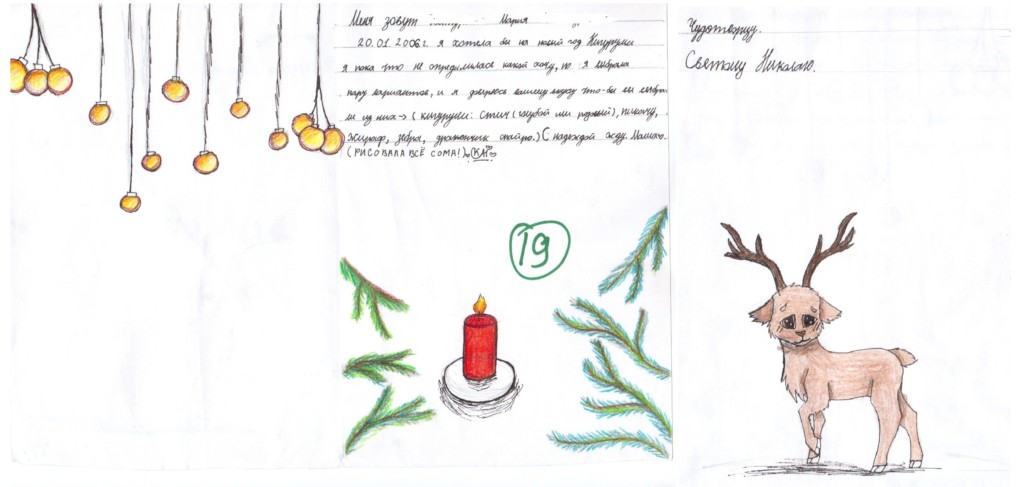 Меня зовут Мария
20.01.2006г. я хотела бы на новый год Кигуруми
я пока что не определилась какой хочу, но я выбрала
пару вариантов, и я доверюсь вашему вкусу что-бы вы выбрали
из них → ( кигуруми: Стич (голубой или розовый), пикачу,
жираф, зебра, дракончик спайро.) С надеждой жду.
(РИСОВАЛА ВСЁ СОМА!)
19
Чудотворцу.
Святому Николаю.